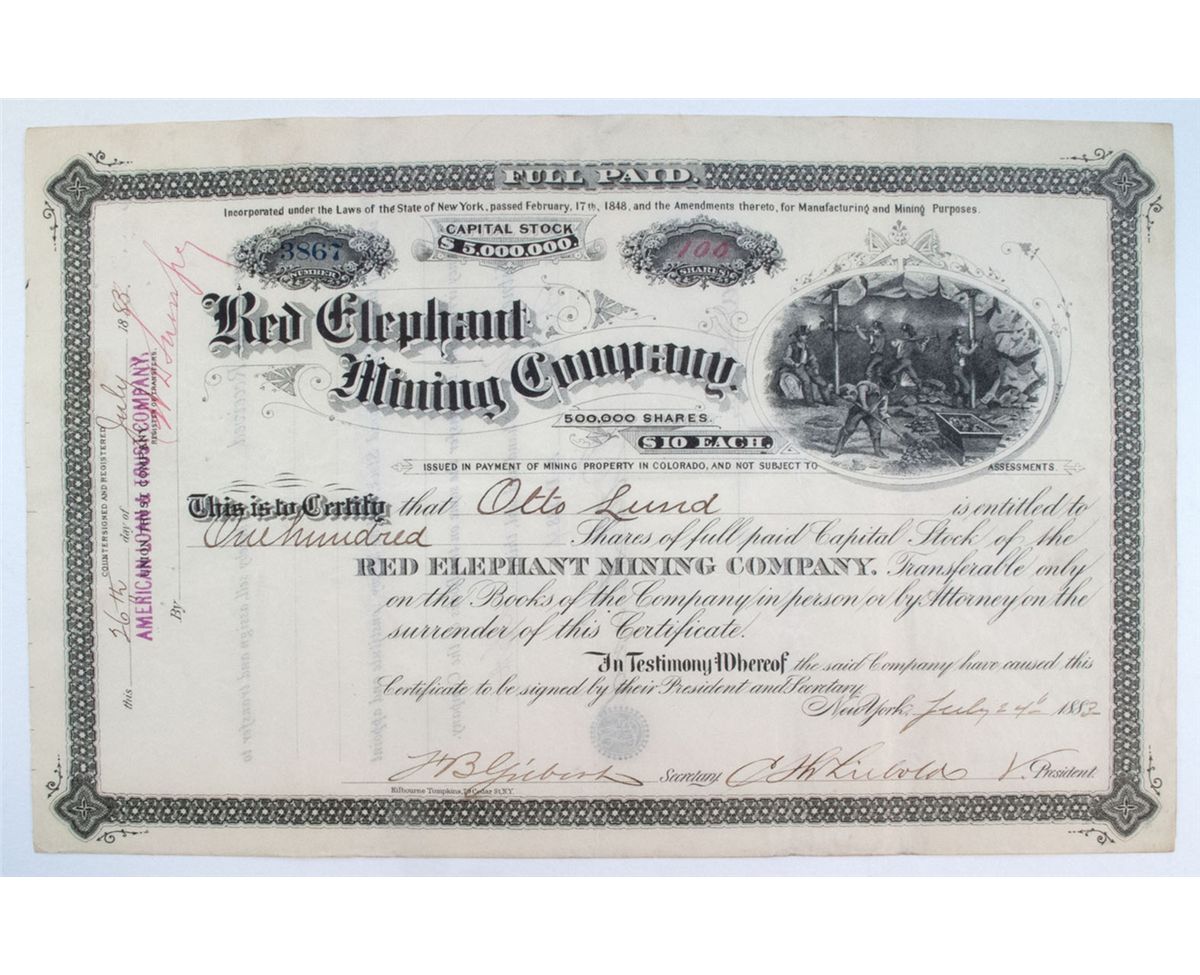 FULL PAID.
Incorporated under the Laws of the State of New York, passed February, 17th, 1848, and the Amendments thereto, for Manufacturing and Mining Purposes.
3867
NUMBER
CAPITAL STOCK
$ 5,000,000.
100
SHARES
Red Elephant
Mining Company.
500,000 SHARES.
$10 EACH.
ISSUED IN PAYMENT OF MINING PROPERTY IN COLORADO, AND NOT SUBJECT TO ASSESSMENTS.
This is to Certify that Otto Lund is entitled to
One hundred Shares of full paid Capital Stock of the
RED ELEPHANT MINING COMPANY. Transferable only
on the Books of the Company in person or by Attorney on the
surrender of this Certificate.
In Testimony Whereof the said Company have caused this
Certificate to be signed by their President and Secretary.
New York, July 24th 1883
Secretary V. President.
Kilbourne Tompkins, 79 Cedar St. N.Y.
COUNTERSIGNED AND REGISTERED
this 26th day of July 1883.
AMERICAN LOAN & TRUST COMPANY,
REGISTRAR OF TRANSFERS.
By